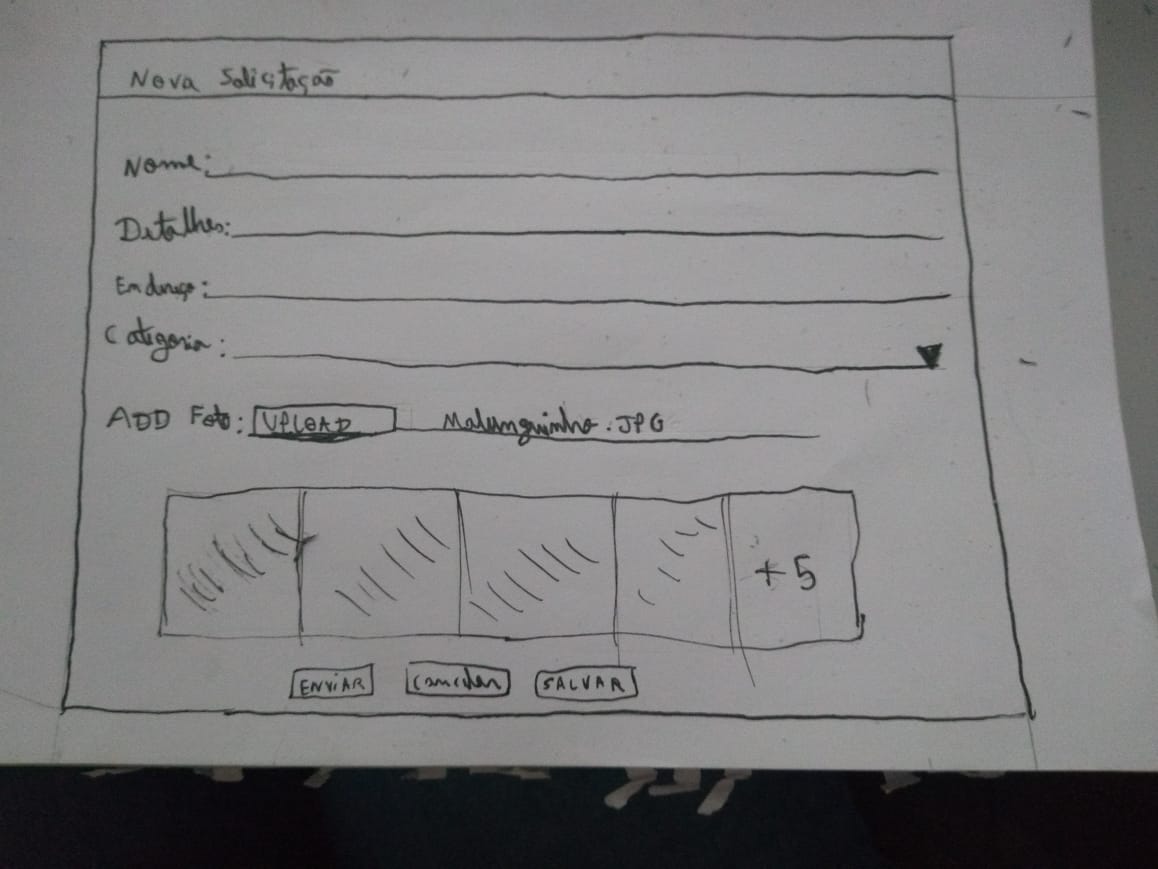 Nova Solicitação
Nome:
Detalhes:
Endereço:
Categoria:
ADD Foto: UPLOAD Malunguinho.JPG
+5
ENVIAR Cancelar SALVAR